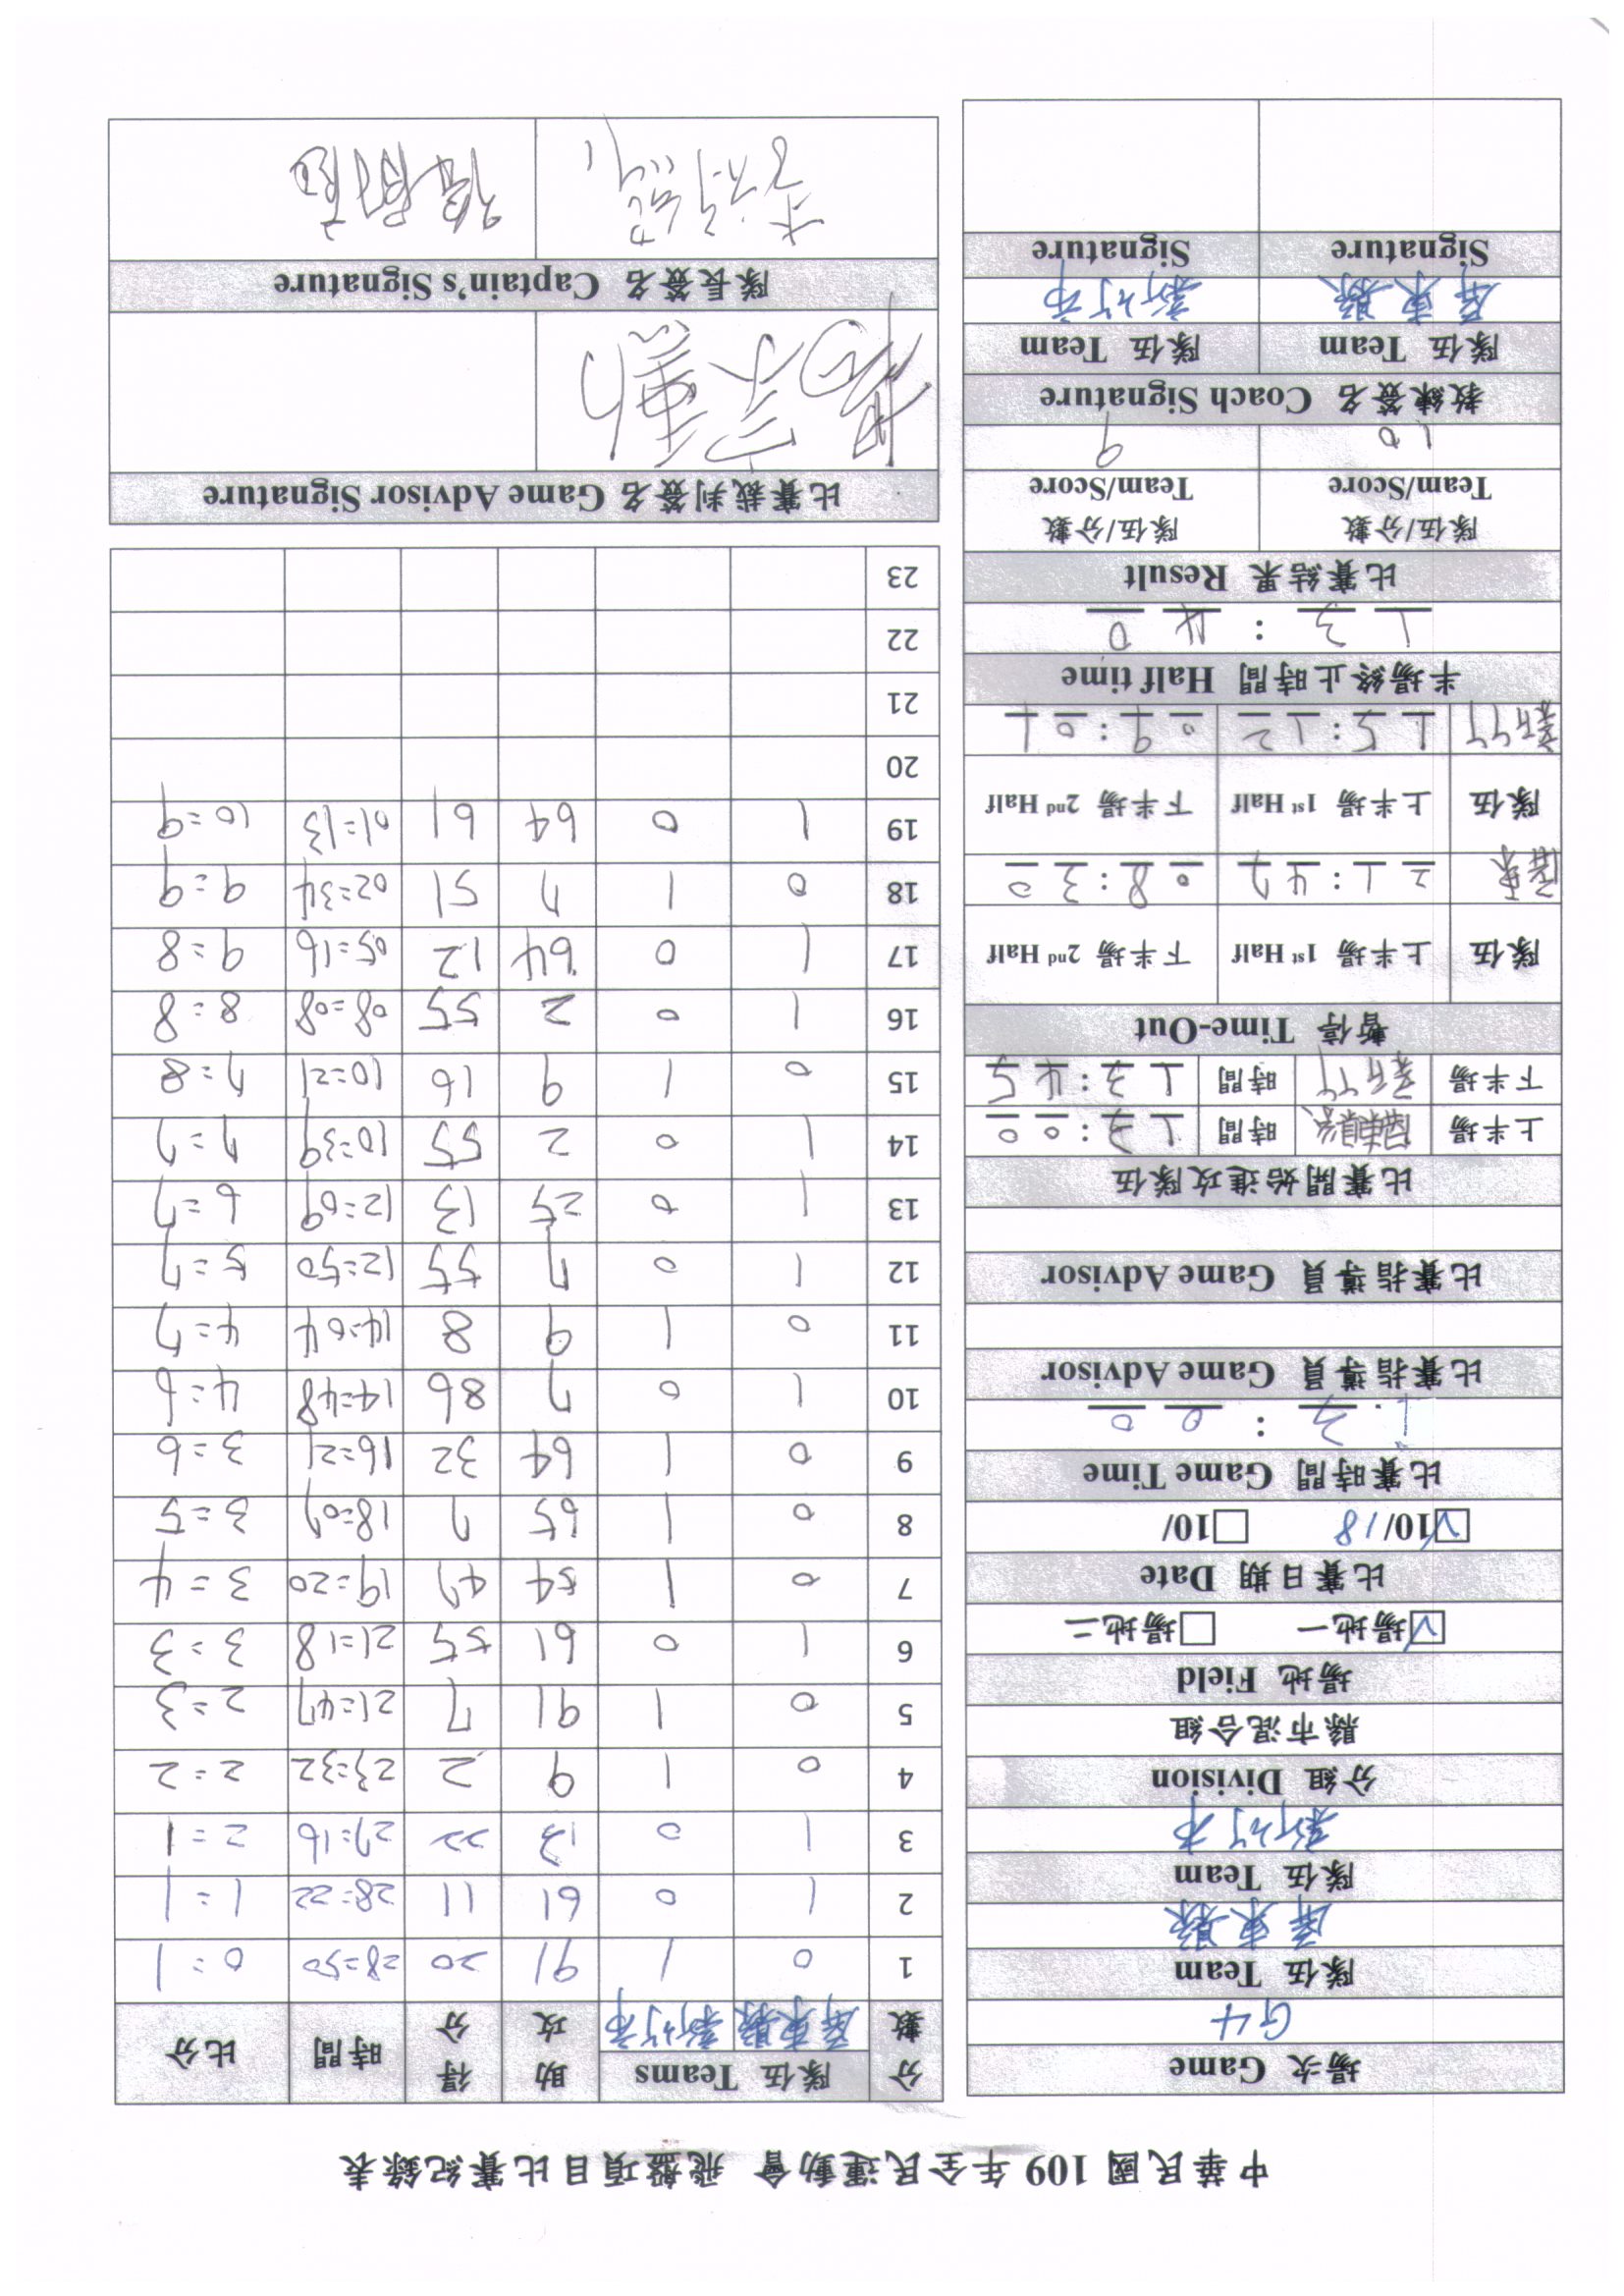 中華民國 109 年全民運動會 飛盤項目比賽紀錄表
場次 Game
G4
隊伍 Team
屏東縣
隊伍 Team
新竹市
分組 Division
縣市混合組
場地 Field
☑場地一 □場地二
比賽日期 Date
☑10/18 □10/
比賽時間 Game Time
13:00
比賽指導員 Game Advisor
比賽指導員 Game Advisor
比賽開始進攻隊伍
上半場 時間 13:00
下半場 新竹 時間 13:45
暫停 Time-Out
隊伍 上半場 1st Half 下半場 2nd Half
屏東 21:47 08:30
隊伍 上半場 1st Half 下半場 2nd Half
新竹 15:12 09:01
半場終止時間 Half time
13:40
比賽結果 Result
隊伍/分數 Team/Score 隊伍/分數 Team/Score
10 9
教練簽名 Coach Signature
隊伍 Team 隊伍 Team
屏東縣 新竹市
Signature Signature
分數 隊伍 Teams 助攻 得分 時間 比分
屏東縣 新竹市
1 0 1 91 20 28=50 0=1
2 1 0 61 11 28=22 1=1
3 1 0 13 22 27=16 2=1
4 0 1 9 2 23=32 2=2
5 0 1 91 7 21=47 2=3
6 1 0 61 55 21=18 3=3
7 0 1 54 47 19=20 3=4
8 0 1 65 7 18=07 3=5
9 0 1 64 32 16=21 3=6
10 1 0 7 86 14=48 4=6
11 0 1 9 8 14=04 4=7
12 1 0 7 55 12=50 5=7
13 1 0 25 13 12=09 6=7
14 1 0 2 55 10=39 7=7
15 0 1 9 16 10=21 7=8
16 1 0 2 55 08=08 8=8
17 1 0 64 12 05=16 9=8
18 0 1 7 51 02=34 9=9
19 1 0 64 61 01=13 10=9
20
21
22
23
比賽裁判簽名 Game Advisor Signature
楊宗勳
隊長簽名 Captain's Signature